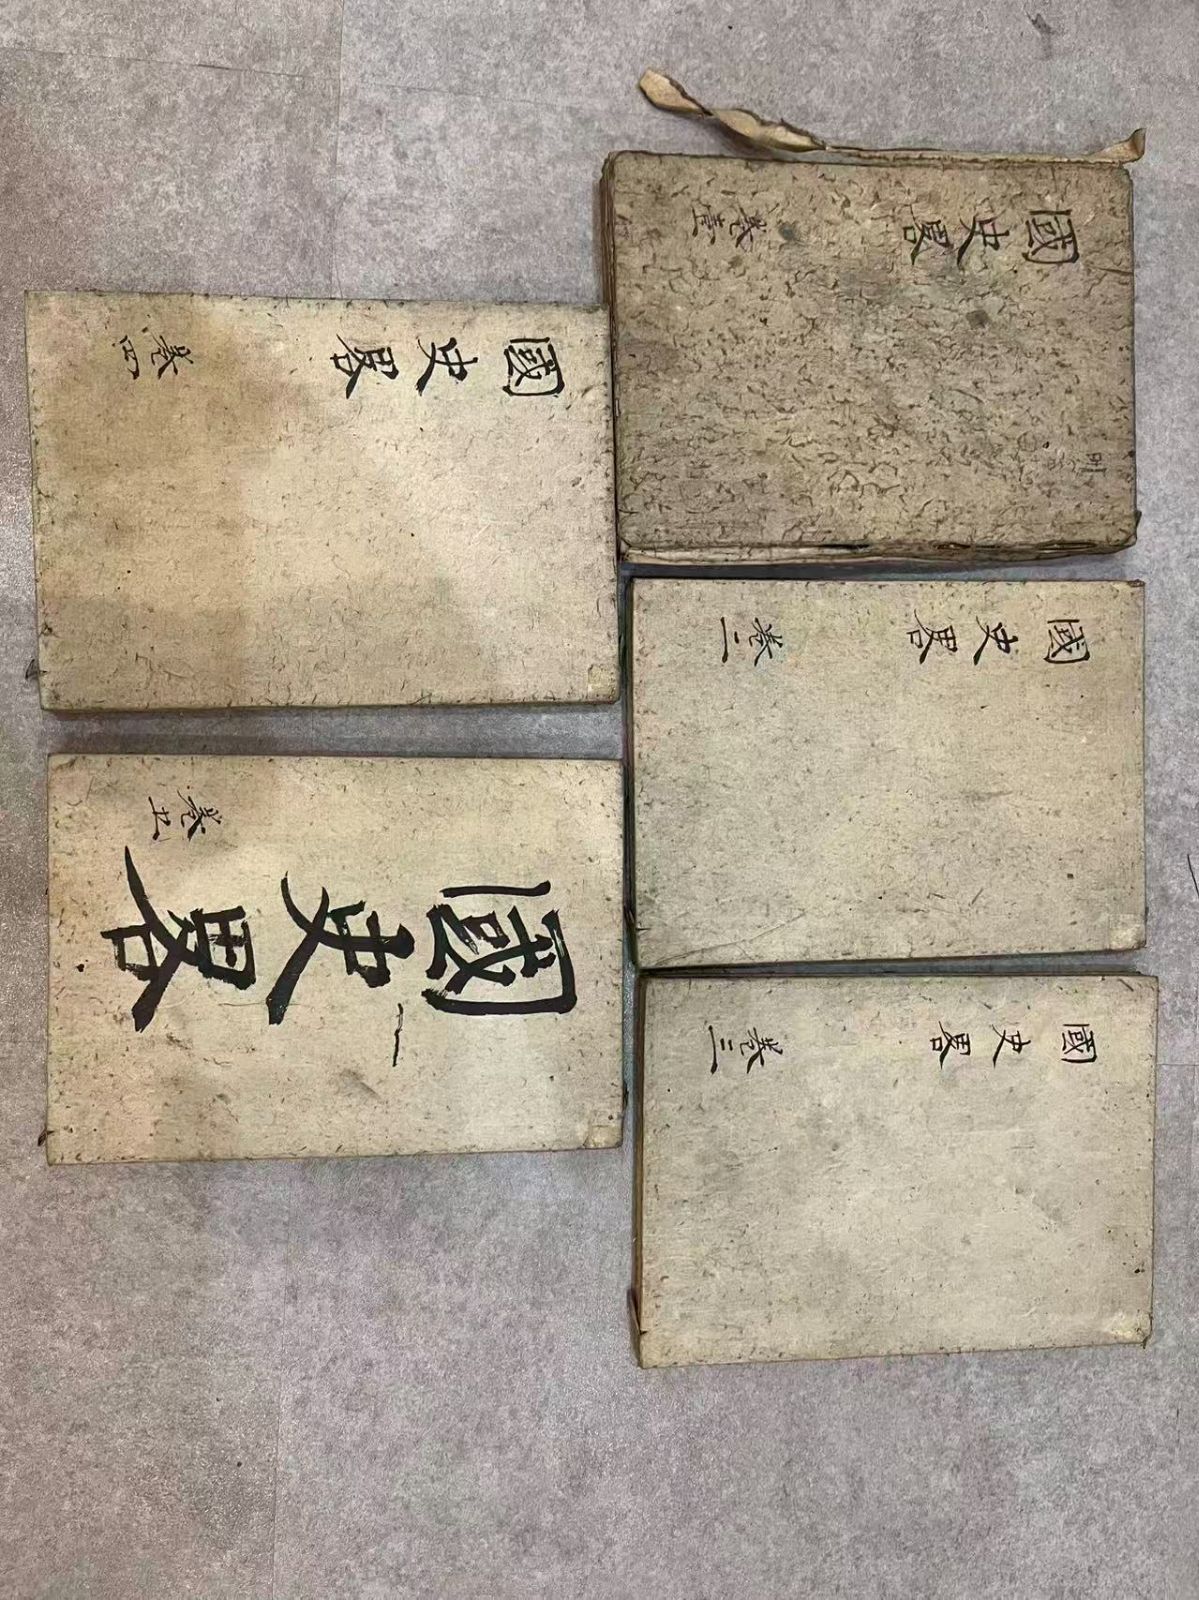 國史畧
卷壹
國史畧
卷二
國史畧
卷三
國史畧
卷四
國史畧
卷五